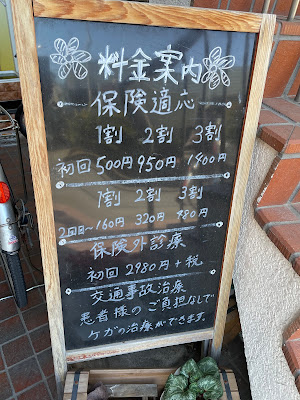 料金案内
保険適応
1割 2割 3割
初回 500円 950円 1400円
1割 2割 3割
2回目~160円 320円 480円
保険外診療
初回 2980円+税
交通事故治療
患者様のご負担なしで
ケガの治療ができます。